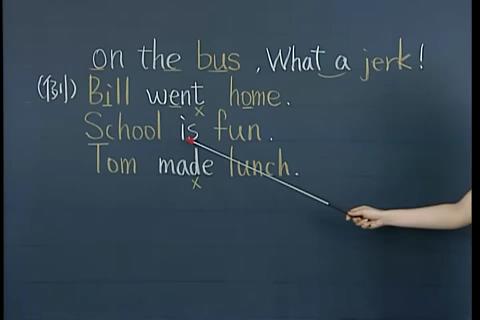 on the bus, What a jerk!
(例) Bill went home.
School is fun.
Tom made lunch.